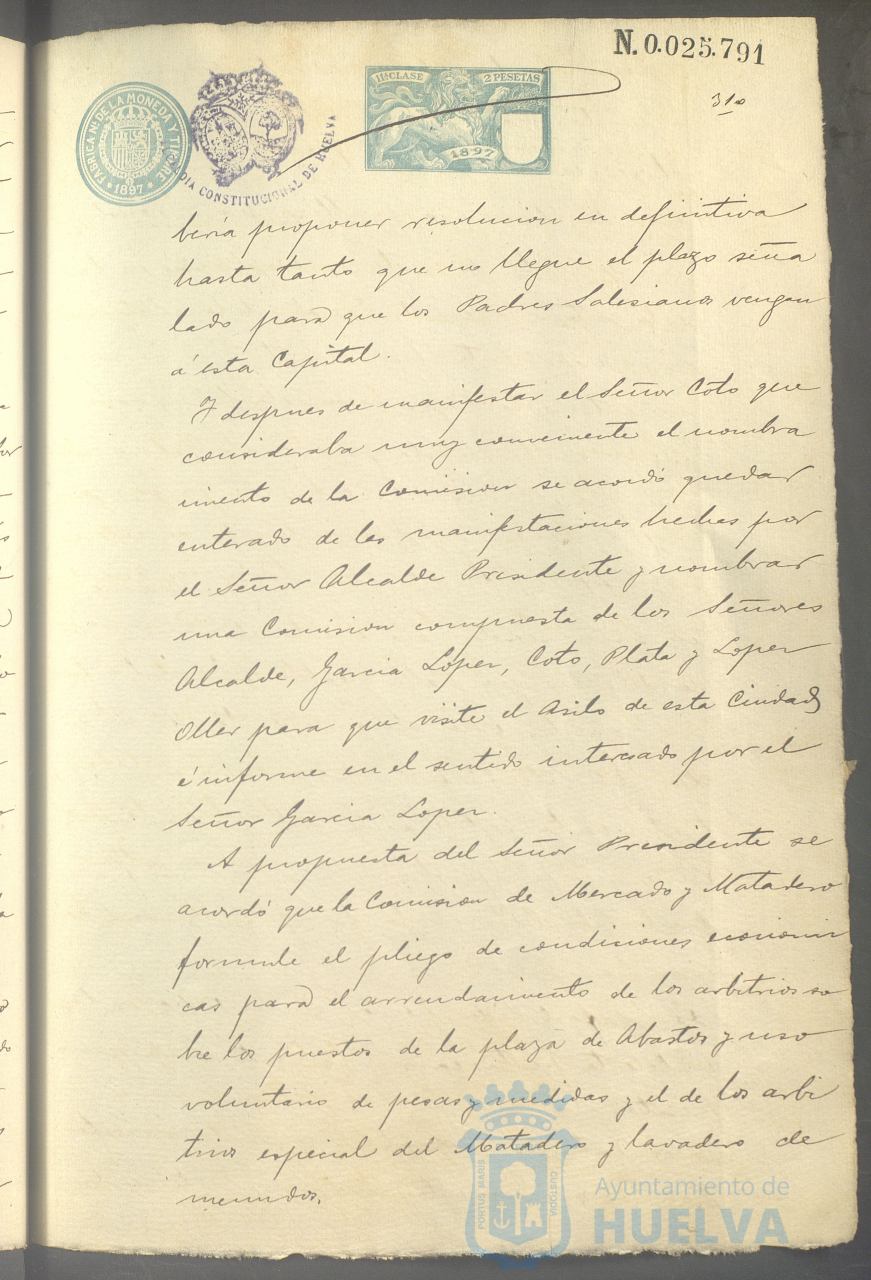 N. 0.025.791
11ª CLASE 2 PESETAS
1897
FABRICA Nl. DE LA MONEDA Y TIMBRE
1897
DIA CONSTITUCIONAL DE HUELVA
beria proponer resolucion en definitiva
hasta tanto que no llegue el plazo seña
lado para que los Padres Salesianos vengan
á esta Capital.
Y despues de manifestar el Señor Coto que
consideraba muy conveniente el nombra
miento de la Comision se acordó quedar
enterado de las manifestaciones hechas por
el Señor Alcalde Presidente y nombrar
una Comision compuesta de los Señores
Alcalde, Garcia Lopez, Coto, Plata y Lopez
Oller para que visite el Asilo de esta Ciudad
é informe en el sentido interesado por el
Señor Garcia Lopez.
A propuesta del Señor Presidente se
acordó que la Comision de Mercado y Matadero
formule el pliego de condiciones economi
cas para el arrendamiento de los arbitrios so
bre los puestos de la plaza de Abastos y uso
voluntario de pesas y medidas y el de los arbi
trios especial del Matadero y lavadero de
menudos.
PORTUS MARIS CUSTODIA
Ayuntamiento de
HUELVA